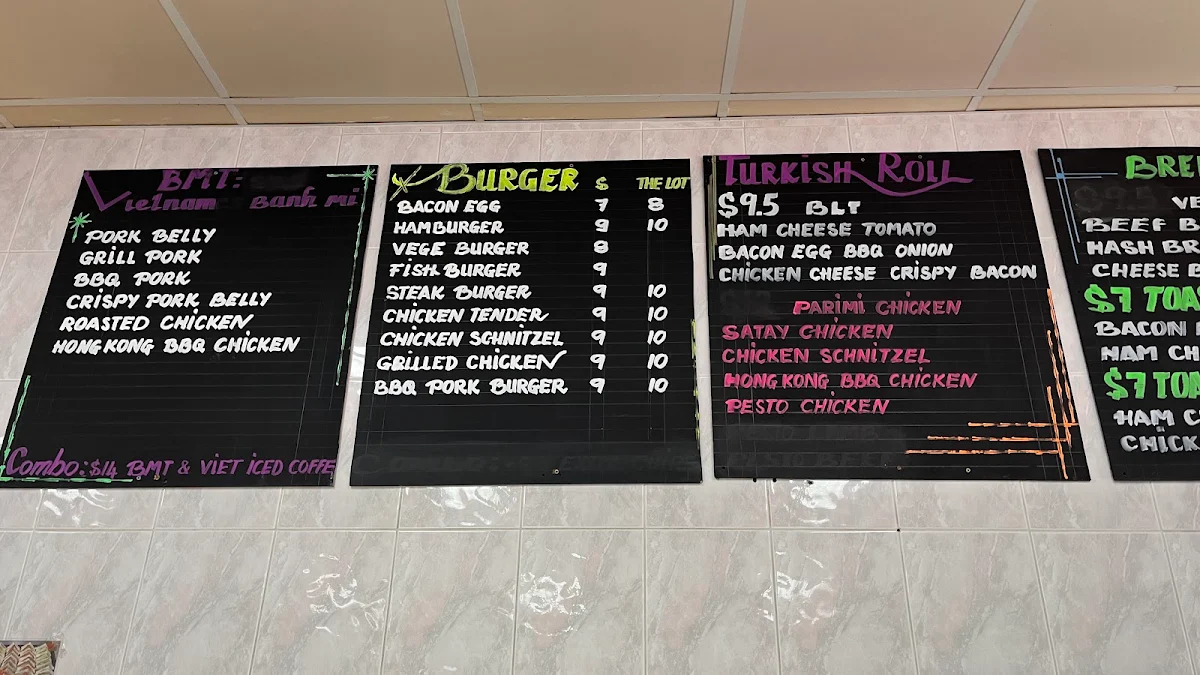 BMT:
Vietnam Banh mi
PORK BELLY
GRILL PORK
BBQ PORK
CRISPY PORK BELLY
ROASTED CHICKEN
HONG KONG BBQ CHICKEN
Combo: $14 BMT & VIET ICED COFFE
BURGER $ THE LOT
BACON EGG 7 8
HAMBURGER 9 10
VEGE BURGER 8
FISH BURGER 9
STEAK BURGER 9 10
CHICKEN TENDER 9 10
CHICKEN SCHNITZEL 9 10
GRILLED CHICKEN 9 10
BBQ PORK BURGER 9 10
TURKISH ROLL
$9.5 BLT
HAM CHEESE TOMATO
BACON EGG BBQ ONION
CHICKEN CHEESE CRISPY BACON
PARIMI CHICKEN
SATAY CHICKEN
CHICKEN SCHNITZEL
HONG KONG BBQ CHICKEN
PESTO CHICKEN
BRE
VE
BEEF B
HASH BR
CHEESE B
$7 TOA
BACON
HAM CH
$7 TOA
HAM C
CHICK